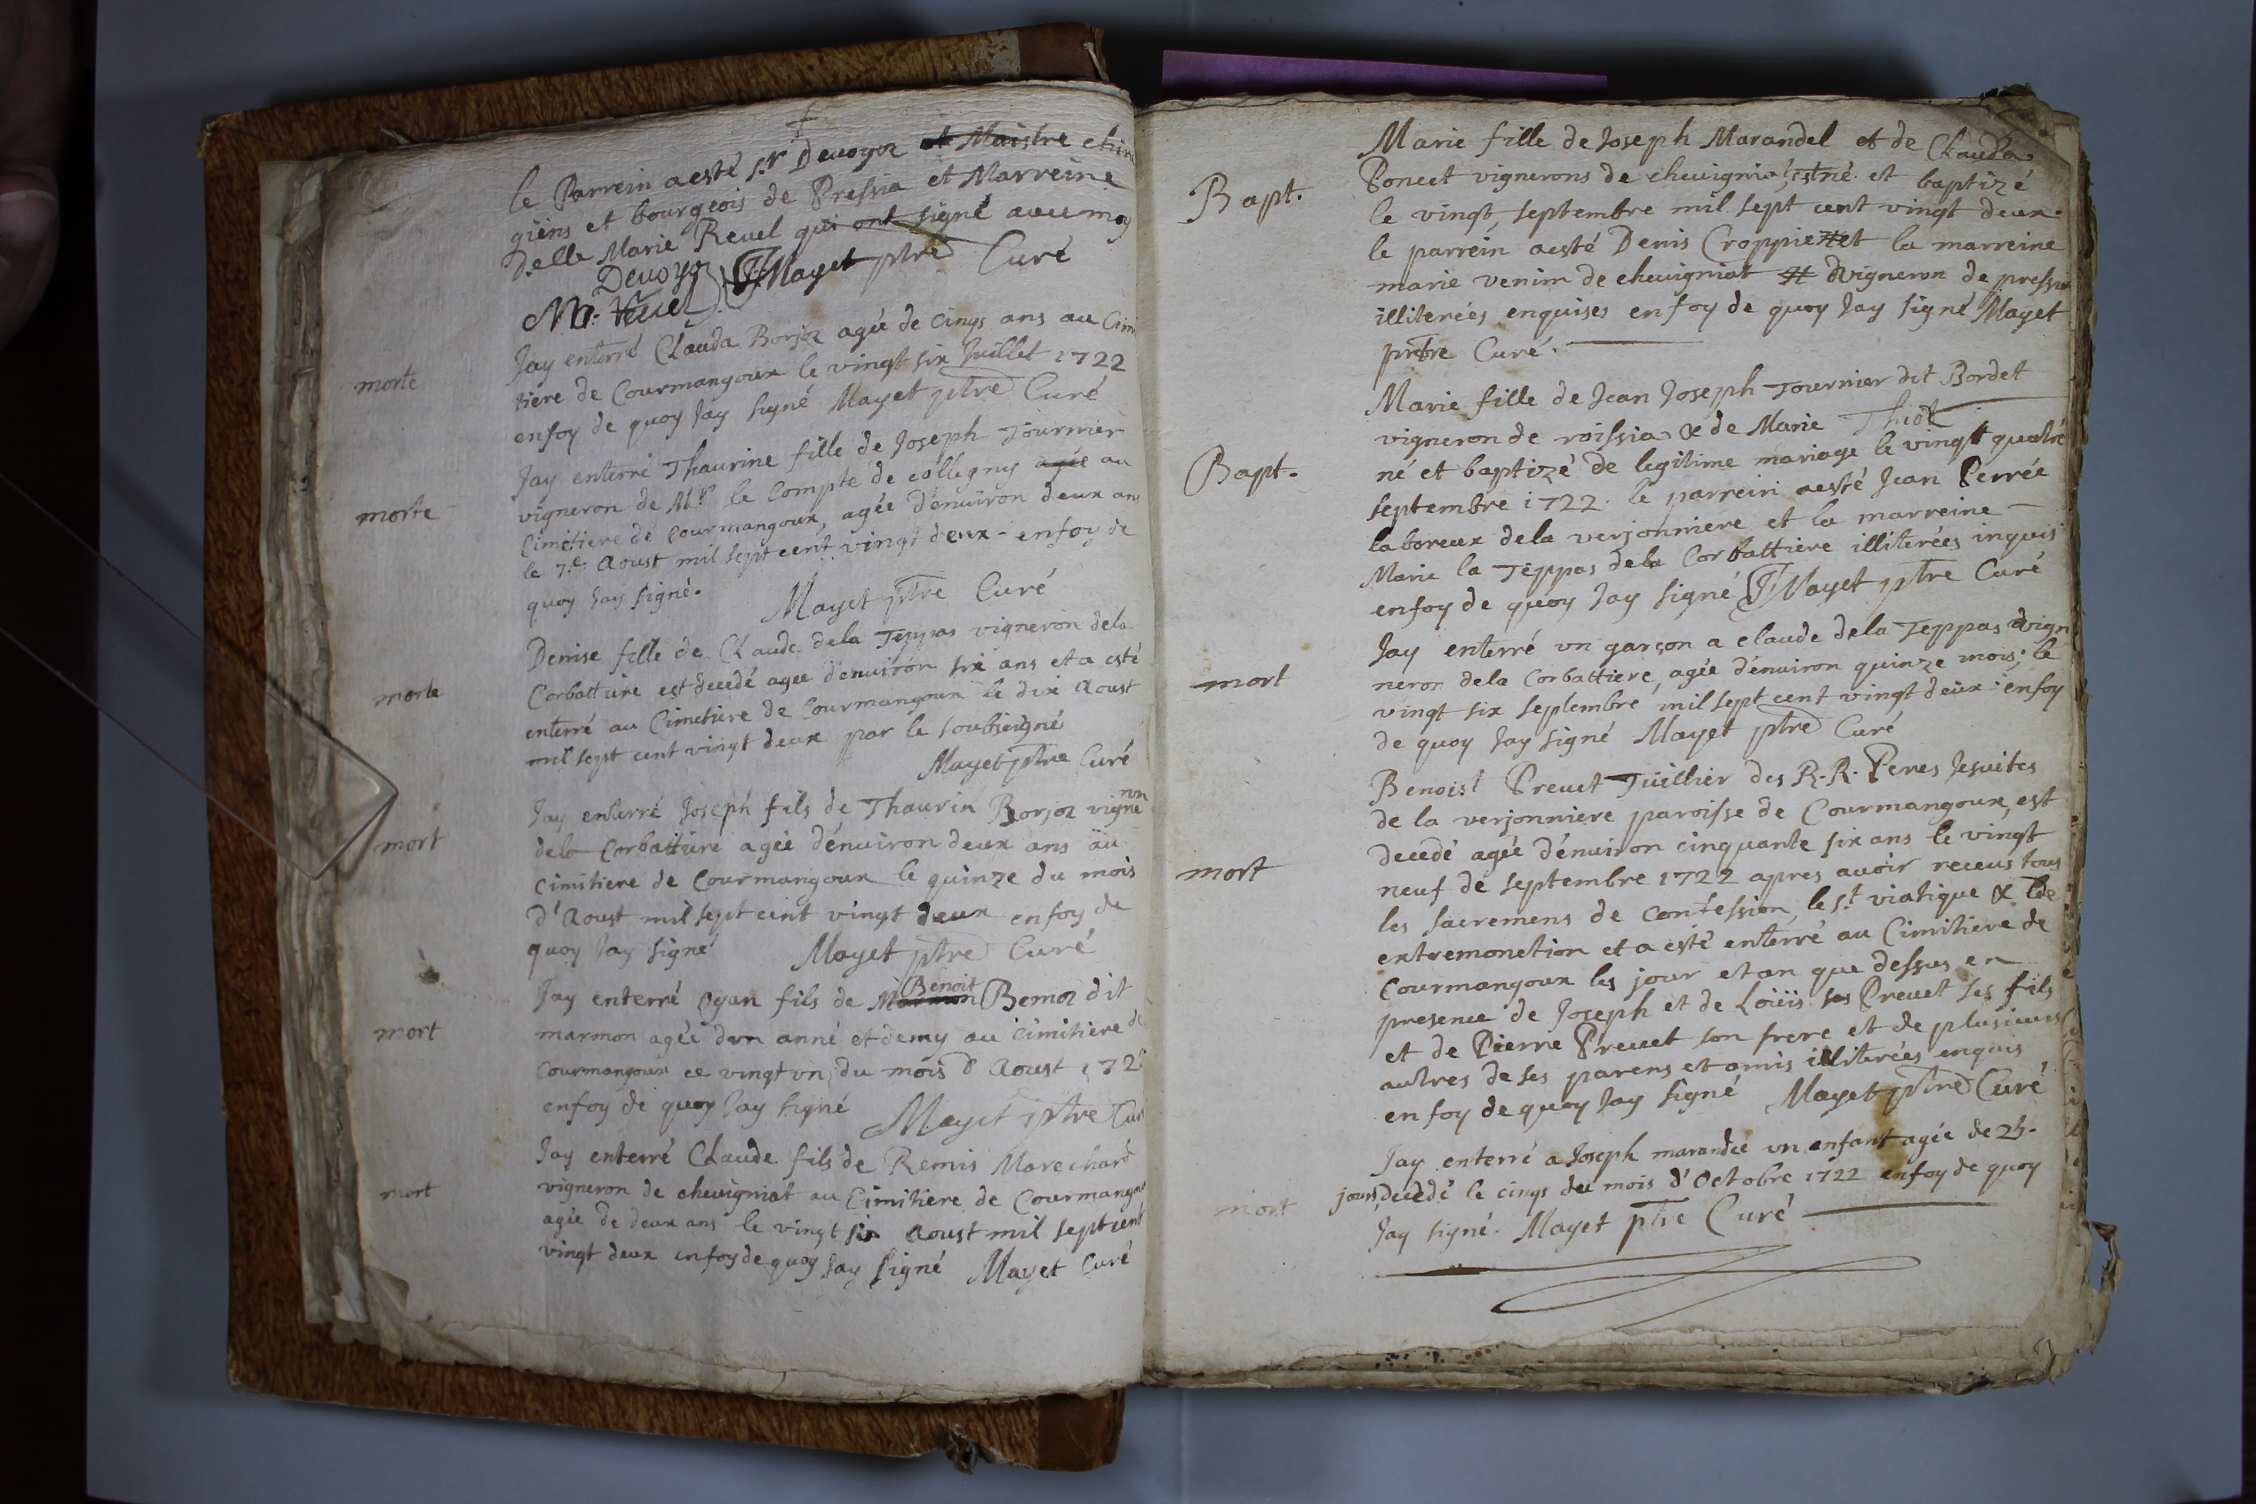 le Parrein a esté Sr Deuoyoz et Maistre chiru
giens et bourgeois de Pressia et Marreine
Delle Marie Reuel qui ont signé auec moy
Deuoyoz Mayet ptre Curé
M. Reuel
morte
Jay enterré Clauda Borjoz agée de cinqs ans au Cimi
tiere de Courmangoux le vingt six Juillet 1722
enfoy de quoy Jay signé Mayet ptre Curé
morte
Jay enterré Thaurine fille de Joseph Tournier
vigneron de Mr le Compte de collugny agée au
Cimetiere de Courmangoux, agée d'enuiron deux ans
le 7.e Aoust mil sept cent vingt deux - enfoy de
quoy Jay signé. Mayet ptre Curé
morte
Denise fille de Claude dela Teppas vigneron dela
Corbattiere est decedé agée d'enuiron six ans et a esté
enterré au Cimetiere de Courmangoux le dix Aoust
mil sept cent vingt deux par le soubseigné
Mayet ptre Curé
mort
Jay enterré Joseph fils de Thaurin Borjoz vigneron
dela Corbattiere agée d'enuiron deux ans au
Cimitiere de Courmangoux le quinze du mois
d'Aoust mil sept cent vingt deux enfoy de
quoy Jay signé Mayet ptre Curé
mort
Jay enterré Oyan fils de Marmon Benoit Bemoz dit
marmon agée d'un anné et demy au cimitiere de
Courmangoux ce vingt vn du mois d'Aoust 172
enfoy de quoy Jay signé Mayet ptre Cur
mort
Jay enterré Claude fils de Remis Marechard
vigneron de cheuigniat au Cimitiere de Courmangoux
agée de deux ans le vingt six Aoust mil sept cent
vingt deux enfoy de quoy Jay signé Mayet Curé
Bapt.
Marie fille de Joseph Marandel et de Clauda
Poncet vignerons de cheuigniat, est né et baptizé
le vingt, septembre mil sept cent vingt deux
le parrein a esté Denis Croppier et la marreine
marie venim de cheuigniat vigneron de pressia
illiterées enquises enfoy de quoy Jay signé Mayet
prebtre Curé.
Bapt.
Marie fille de Jean Joseph Tournier dit Bordet
vigneron de roissia & de Marie Thiot
né et baptizé de legitime mariage le vingt quatre
septembre 1722. le parrein a esté Jean Perrée
laboreux dela verjonniere et la marreine
Marie la Teppas dela Corbattiere illiterées inquis
enfoy de quoy Jay signé Mayet ptre Curé
mort
Jay enterré vn garçon a claude dela Teppas vign
neron dela Corbattiere, agée d'enuiron quinze mois; le
vingt six septembre mil sept cent vingt deux enfoy
de quoy Jay signé Mayet ptre Curé
mort
Benoist Preuet Tuillier des R. R. Peres Jesuites
de la verjonniere paroisse de Courmangoux, est
decedé agée d'enuiron cinquante six ans le vingt
neuf de septembre 1722 apres auoir receus tous
les sacremens de confession, le st viatique & de
extremonction et a esté enterré au Cimitiere de
Courmangoux les jour et an que dessus en
presence de Joseph et de Loüis Preuet ses fils
et de Pierre Preuet son frere et de plusieurs
autres de ses parens et amis illiterées enquis
enfoy de quoy Jay signé Mayet ptre Curé
mort
Jay enterré a Joseph marandée vn enfant agée de 25.
jours, decedé le cinqs du mois d'Octobre 1722 enfoy de quoy
Jay signé. Mayet ptre Curé